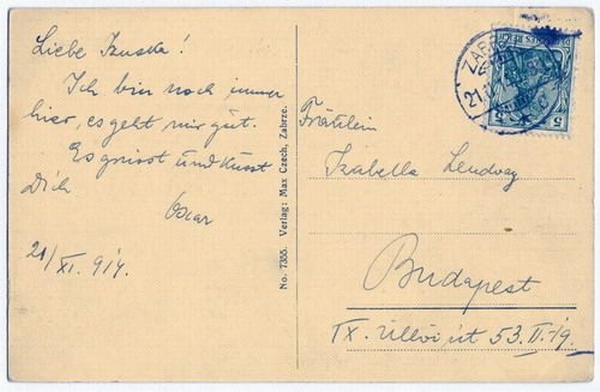 Liebe Izuska!
Ich bin noch immer
hier, es geht mir gut.
Es grüsst und küsst
Dich
Oscar
21/XI. 914.
No. 7355. Verlag: Max Czech, Zabrze.
ZABRZE
21.11
DEUTSCHES REICH
5 5
Fräulein
Izabella Lendvay
Budapest
IX. Üllői út 53. II. 19